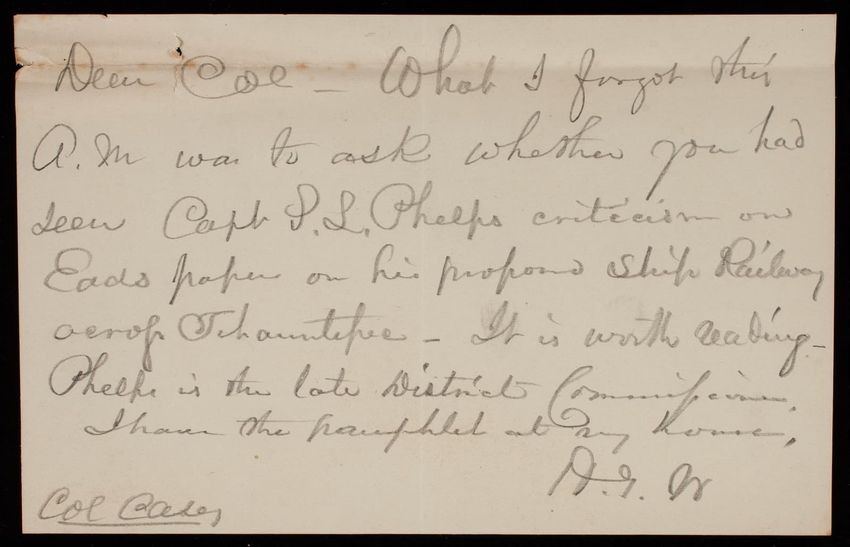 Dear Col — What I forgot this
A.M was to ask whether you had
seen Capt S. L. Phelps criticism on
Eads paper on his proposed Ship Railway
across Tehauntepec — It is worth reading —
Phelps is the late District Commissioner.
I have the pamphlet at my house.
H. G. W
Col Casey